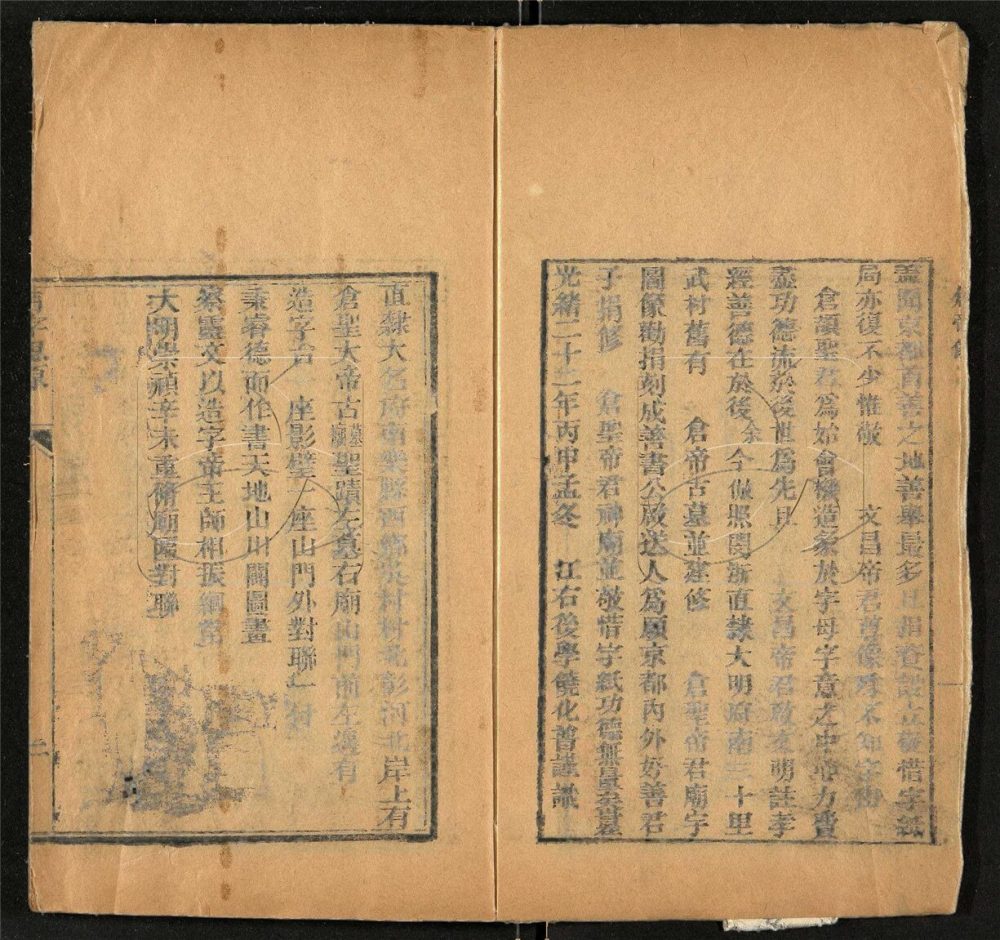 蓋聞京都首善之地善舉最多且捐資設立敬惜字紙
局亦復不少惟敬 文昌帝君尊像殊不知字由
倉頡聖君爲始會機造象於字母字意之中心力費
盡功德流於後世爲先且 文昌帝君敢文明註孝
經善德在於後余今倣照閩浙直隸大明府南三十里
武村舊有 倉帝古墓並建修 倉聖帝君廟宇
圖像勸捐刻成善書公啟送人爲願京都內外好善君
子捐修 倉聖帝君神廟並敬惜字紙功德無量矣
光緒二十二年丙申孟冬 江右後學饒化普謹識
直隸大名府南樂縣西鄉吳村村北彰河北岸上有
倉聖大帝古墓廟聖蹟左墓右廟山門前左邊有
造字台一座影壁一座山門外對聯一對
秉睿德而作書天地山川開圖畫
察靈文以造字帝王師相振綱常
大明崇禎辛未重脩廟廈對聯
二